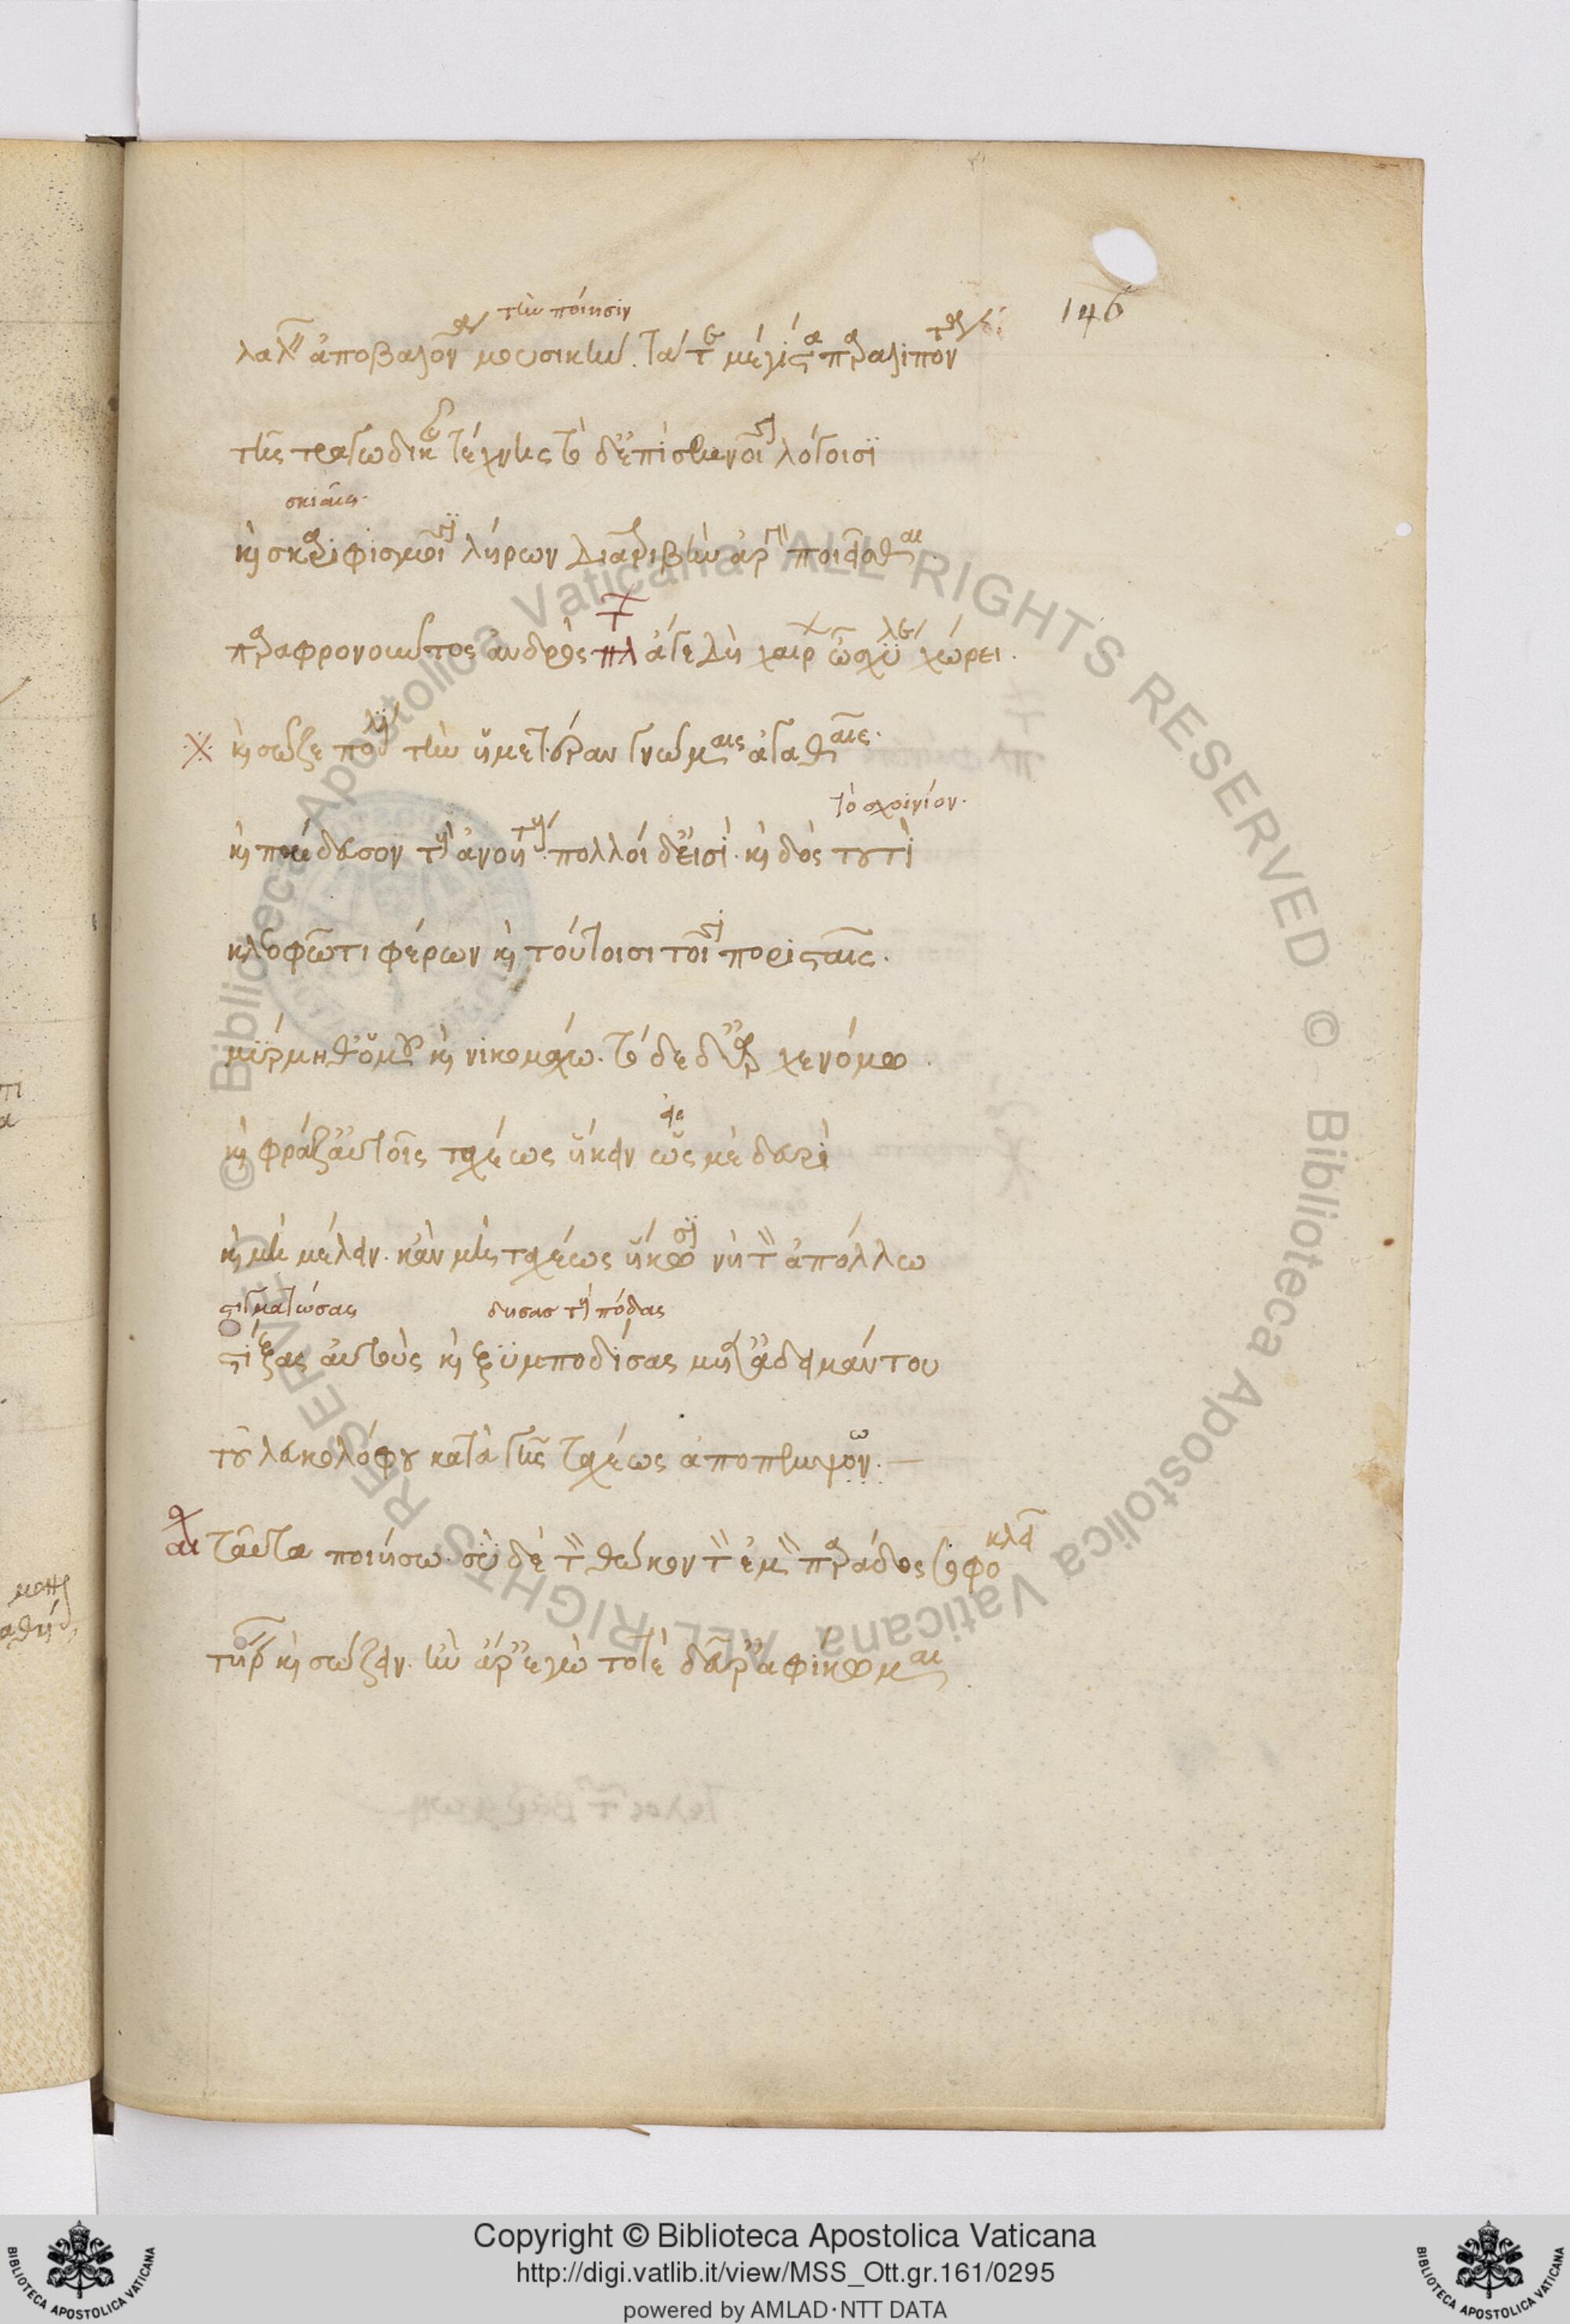 146
τὴν ποίησιν
λαλεῖν ἀποβαλόντα μουσικήν. τά τε μέγιστα παραλιπόντα
τῆς τραγωδικῆς τέχνης τὸ δ' ἐπὶ σεμνοῖσι λόγοισι
σκιαῖς.
καὶ σκαριφισμοῖσι λήρων διατριβὴν ἀργὸν ποιεῖσθαι
παραφρονοῦντος ἀνδρός πλ ἄγε δὴ χαίρων αἰσχύλε χώρει.
καὶ σῶζε πόλιν τὴν ἡμετέραν γνώμαις ἀγαθαῖς.
τὸ σχοινίον.
καὶ παίδευσον τοὺς ἀνοήτους. πολλοὶ δ' εἰσί. καὶ δὸς τουτὶ
κλεοφῶντι φέρων καὶ τούτοισι τοῖσι πορισταῖς.
μύρμηκι θ' ὁμοῦ καὶ νικομάχω. τὸ δέ γ' ἀρχενόμω
καὶ φράζ' αὐτοῖς ταχέως ἥκειν ὡς με δευρὶ
καὶ μὴ μέλλειν. κἂν μὴ ταχέως ἥκωσι νὴ τὸν ἀπόλλω
στιγματώσας δήσας τοὺς πόδας
στίξας αὐτοὺς καὶ ξυμποδίσας μετ' ἀδειμάντου
τοῦ λευκολόφου κατὰ γῆς ταχέως ἀποπέμψω.
αι ταῦτα ποιήσω. σὺ δὲ τὸν θῶκον τὸν ἐμὸν παράδος σοφοκλεῖ
τηρεῖν καὶ σώζειν. ἢν ἄρ' ἐγώ ποτε δεῦρ' ἀφίκωμαι
Copyright © Biblioteca Apostolica Vaticana
http://digi.vatlib.it/view/MSS_Ott.gr.161/0295
powered by AMLAD·NTT DATA